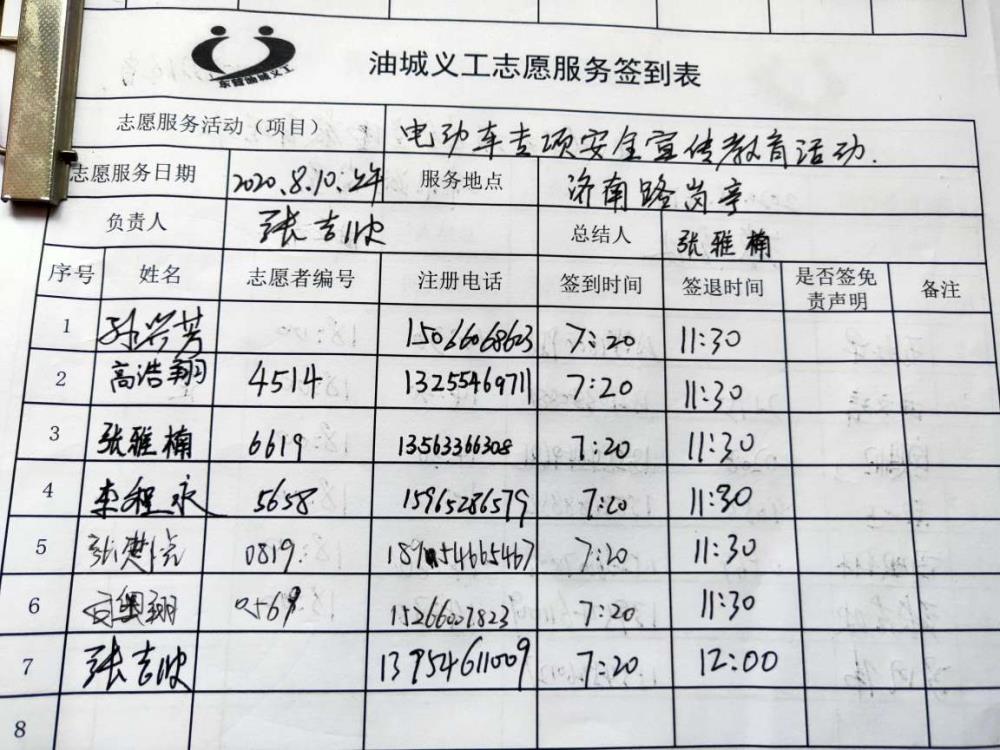 东营油城义工
油城义工志愿服务签到表
志愿服务活动（项目） 电动车专项安全宣传教育活动.
志愿服务日期 2020.8.10.上午 服务地点 济南路岗亭
负责人 张吉波 总结人 张雅楠
序号 姓名 志愿者编号 注册电话 签到时间 签退时间 是否签免责声明 备注
1 孙兴芳 15066068623 7:20 11:30
2 高浩翔 4514 13255469711 7:20 11:30
3 张雅楠 6619 13563366308 7:20 11:30
4 李程永 5658 15965286579 7:20 11:30
5 0819. 18954665467 7:20 11:30
6 0569 15266027823 7:20 11:30
7 张吉波 13954611009 7:20 12:00
8